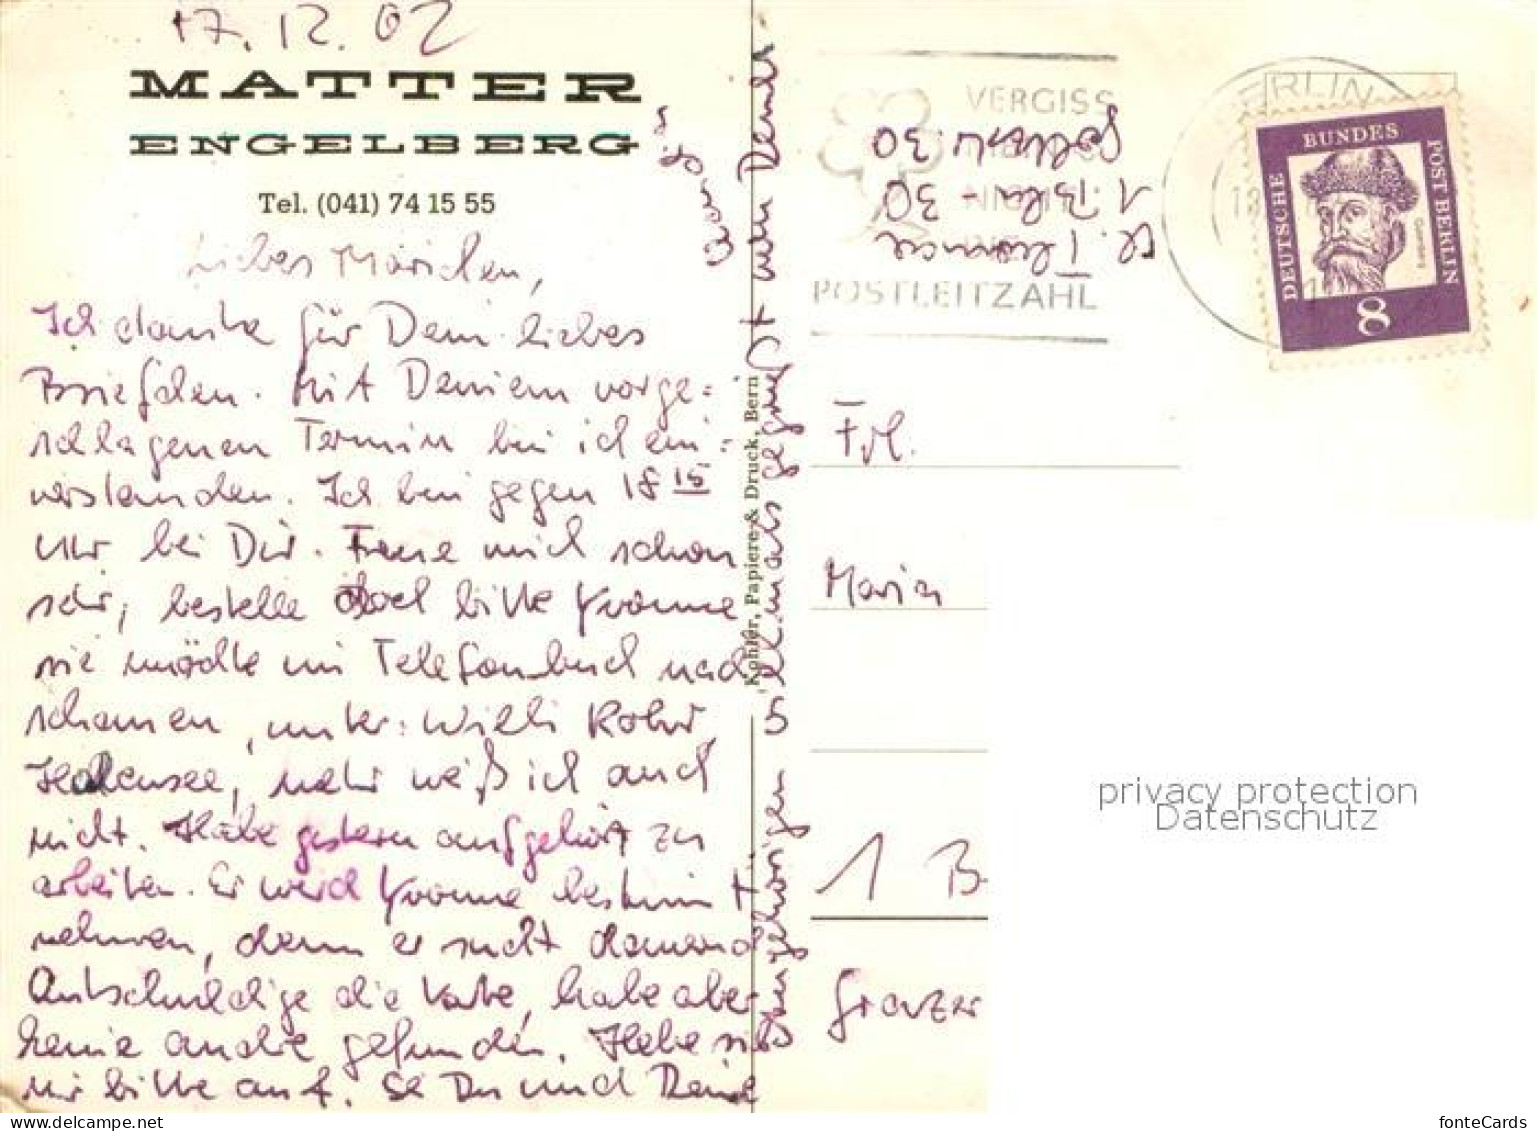 17. 12. 62
MATTER
ENGELBERG
Tel. (041) 74 15 55
Liebes Marichen,
Ich danke für Dein liebes
Briefchen. Mit Deinem vorge=
schlagenen Termin bin ich ein=
verstanden. Ich bin gegen 18 15
Uhr bei Dir. Freue mich schon
sehr, bestelle doch bitte Yvonne
sie möchte im Telefonbuch nach
schauen, unter: Willi Rohr,
Halensee, mehr weiß ich auch
nicht. Habe gestern aufgehört zu
arbeiten. Er wird Yvonne bestimmt
nehmen, denn er sucht dauernd
Entschuldige die Karte, habe aber
keine andre gefunden. Hebe sie
mir bitte auf. Sei Du und Deine
Angehörigen vielmals gegrüßt von Deiner
Kohler, Papiere & Druck, Bern
1. Bln - 30
30
VERGISS
POSTLEITZAHL
BERLIN
DEUTSCHE
BUNDES
POST BERLIN
Gutenberg
8
Frl.
Maria
1 B
privacy protection
Datenschutz
fonteCards